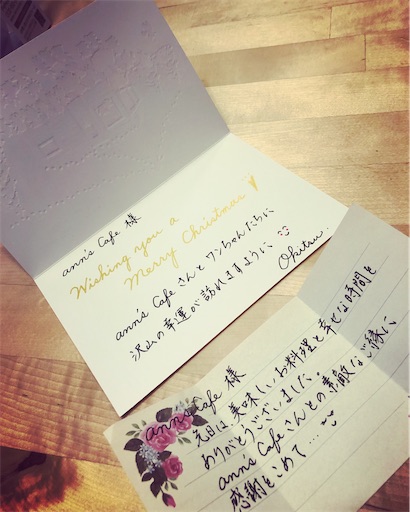 ann's Cafe 様
Wishing you a
Merry Christmas
ann's Cafe さんとワンちゃんたちに
沢山の幸運が訪れますように
Okitsu.
ann's Cafe 様
先日は美味しいお料理と幸せな時間を
ありがとうございました。
ann's Cafe さんとの素敵なご縁に
感謝をこめて...